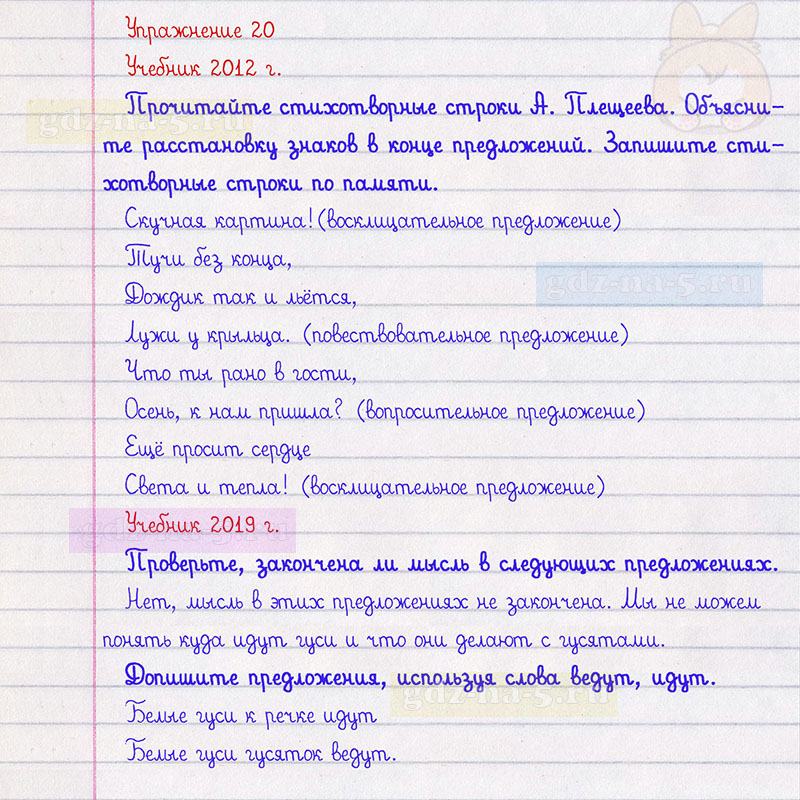 Упражнение 20
Учебник 2012 г.
Прочитайте стихотворные строки А. Плещеева. Объясни-
те расстановку знаков в конце предложений. Запишите сти-
хотворные строки по памяти.
gdz-na-5.ru
Скучная картина!(восклицательное предложение)
Тучи без конца,
gdz-na-5.ru
Дождик так и льётся,
Лужи у крыльца. (повествовательное предложение)
Что ты рано в гости,
Осень, к нам пришла? (вопросительное предложение)
Ещё просит сердце
Света и тепла! (восклицательное предложение)
Учебник 2019 г.
gdz-na-5.ru
Проверьте, закончена ли мысль в следующих предложениях.
Нет, мысль в этих предложениях не закончена. Мы не можем
понять куда идут гуси и что они делают с гусятами.
Допишите предложения, используя слова ведут, идут.
gdz-na-5.ru
Белые гуси к речке идут
Белые гуси гусяток ведут.